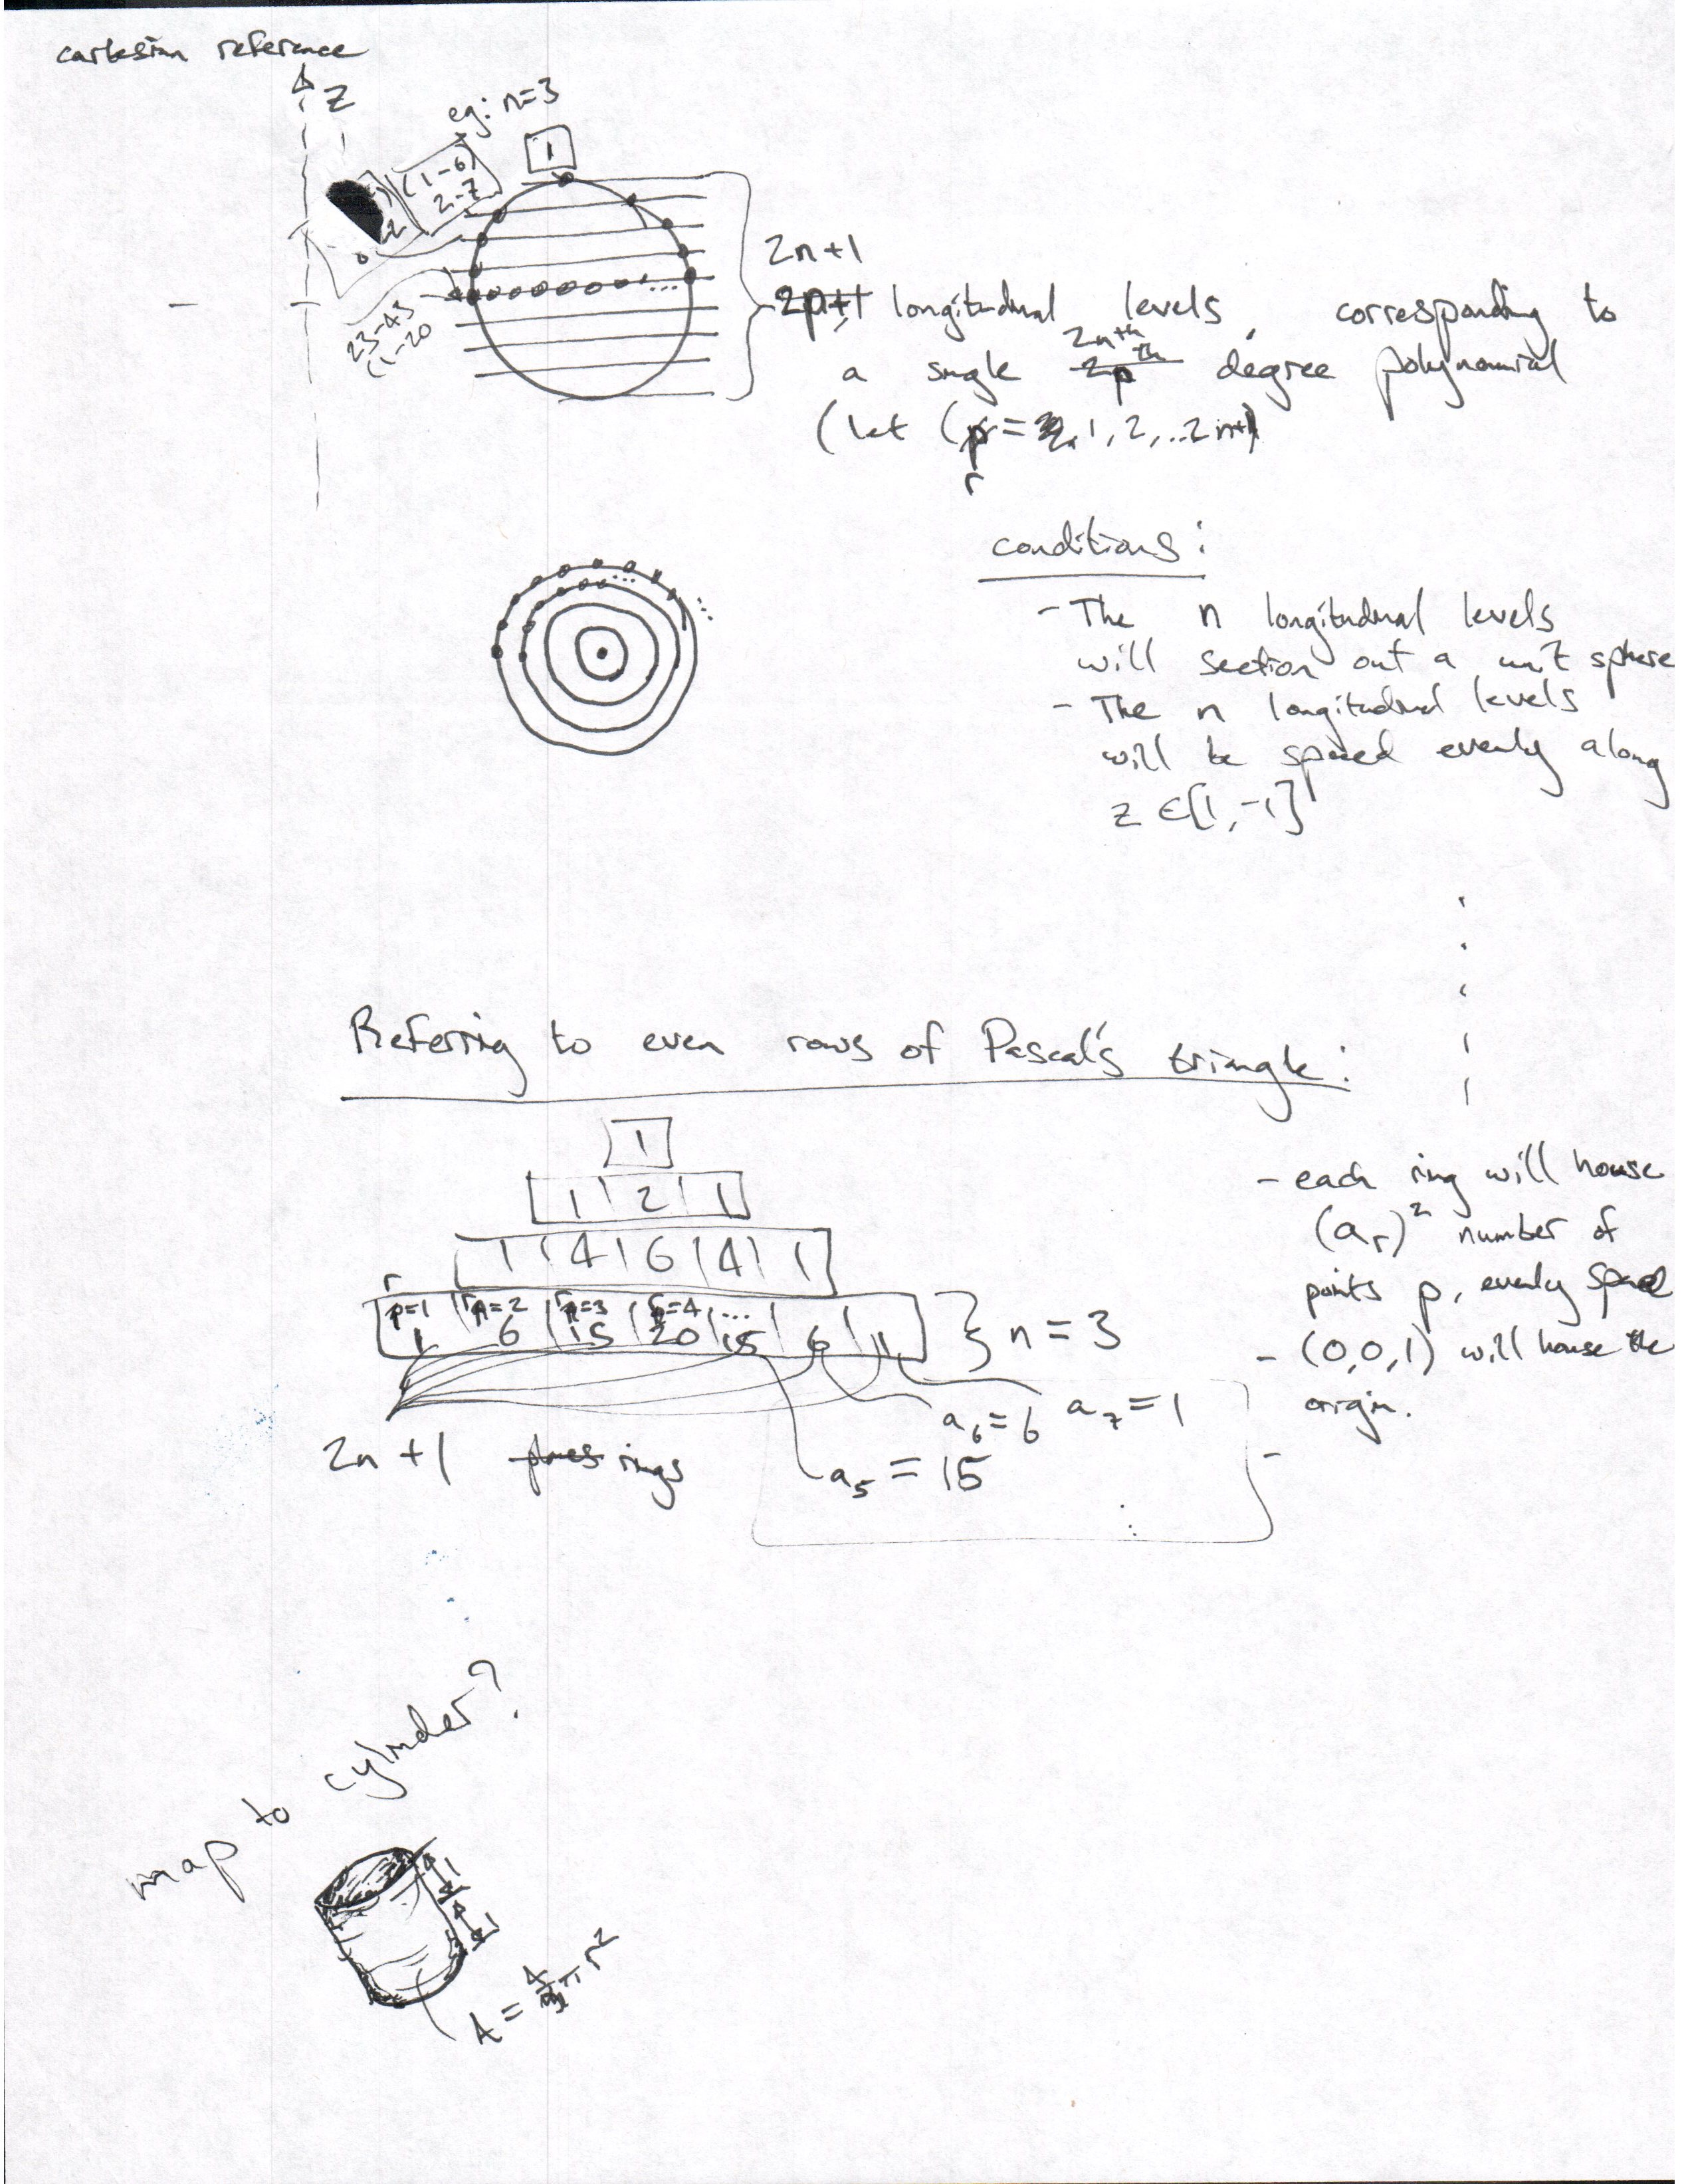 cartesian reference
z
eg: n=3
1
(1-6)
2-7
2
0
23-43
(1-20
2n+1
2p+1 longitudinal levels, corresponding to
2nth
a single 2pth degree polynomial
(let (p = 1, 2, ..2n+1)
r
conditions:
- The n longitudinal levels
will section out a unit sphere
- The n longitudinal levels
will be spaced evenly along
z ∈[1,-1]
Referring to even rows of Pascal's triangle:
1
1 2 1
1 4 6 4 1
r
p=1 r=2 r=3 r=4 ...
1 6 15 20 15 6 1 } n = 3
a6=6 a7=1
2n+1 rings
a5 = 15
- each ring will house
(ar)² number of
points p, evenly spaced
- (0,0,1) will house the
origin.
-
map to cylinder?
1
1
A = 4πr²